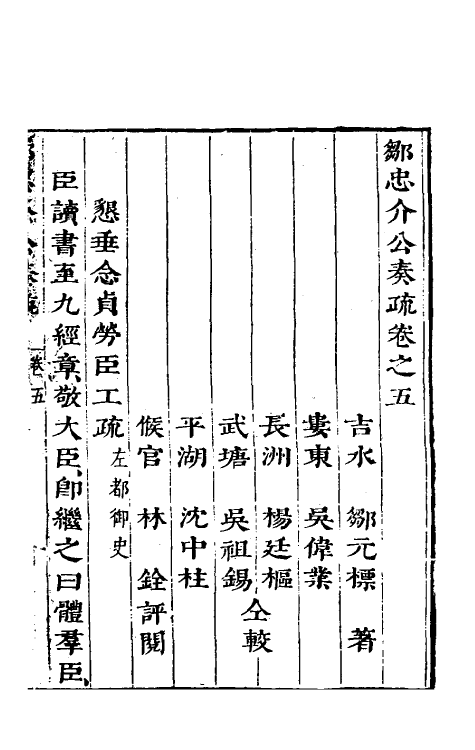 鄒忠介公奏疏卷之五
吉水　鄒元標　著
婁東　吳偉業
長洲　楊廷樞
武塘　吳祖錫
仝較
平湖　沈中柱
候官　林　銓評閱
懇垂念貞勞臣工疏 左都御史
臣讀書至九經章、敬大臣、卽繼之曰體羣臣、
卷五